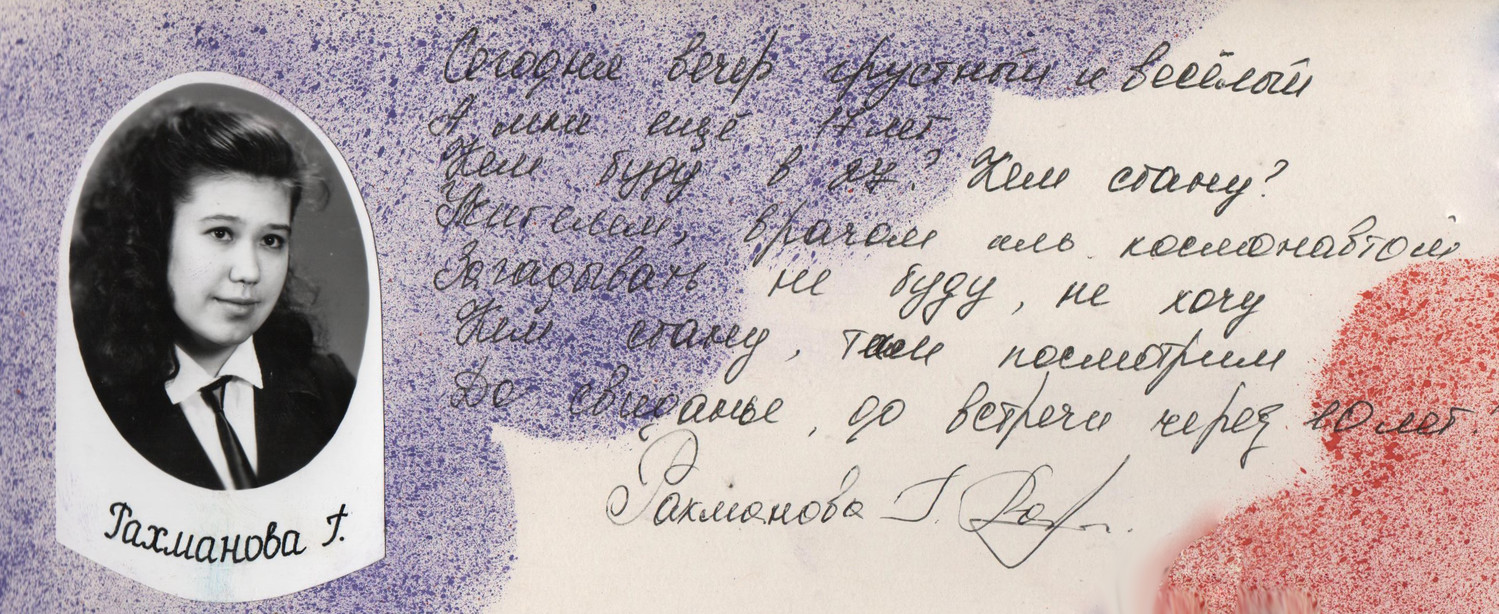 Сегодня вечер грустный и весёлый
А мне ещё 17 лет
Кем буду в 27? Кем стану?
Учителем, врачом иль космонавтом
Загадывать не буду, не хочу
Кем стану, там посмотрим
До свиданье, до встречи через 10 лет!
Рахманова Г.
Рахманова Г.